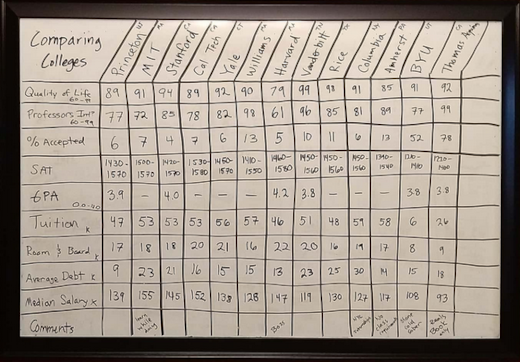 Comparing Colleges
Princeton MIT Stanford Cal Tech Yale Williams Harvard Vanderbilt Rice Columbia Amherst BYU Thomas Aquinas
Quality of Life 60-99 89 91 94 89 92 90 79 99 98 91 85 91 92
Professors Int 60-99 77 72 85 78 82 98 61 96 85 81 89 77 99
% Accepted 6 7 4 7 6 13 5 10 11 6 13 52 78
SAT 1430-1570 1500-1570 1420-1570 1530-1580 1450-1570 1410-1550 1460-1580 1450-1560 1450-1560 1450-1560
GPA 0.0-4.0 3.9 – 4.0 – – – 4.2 3.8 – – – 3.8 3.8
Tuition K 47 53 53 53 56 57 46 51 48 59 58 6 26
Room & Board K 17 18 18 20 21 16 22 20 16 19 17 8 9
Average Debt K 9 23 21 16 15 15 13 23 25 30 14 15 18
Median Salary K 139 155 145 152 138 128 147 119 130 127 117 108 93
Comments